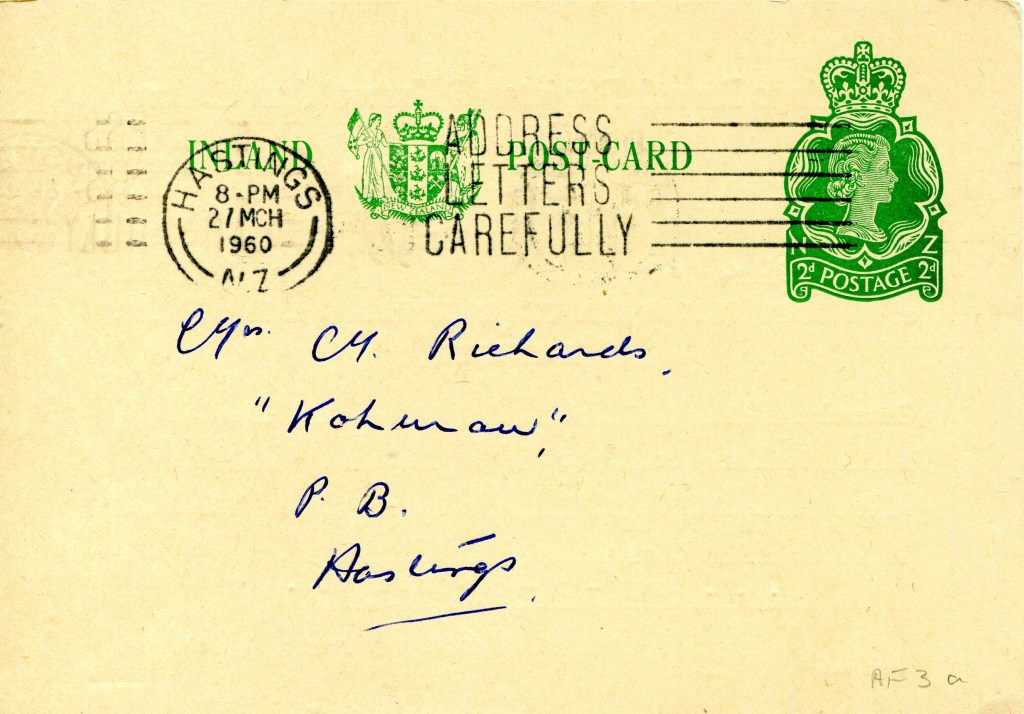 INLAND POST-CARD
NEW ZEALAND
HASTINGS
8-PM
27 MCH
1960
N.Z
ADDRESS
LETTERS
CAREFULLY
N Z
2d POSTAGE 2d
Mrs. M. Richards,
P. B.
Hastings.
AF 3 a